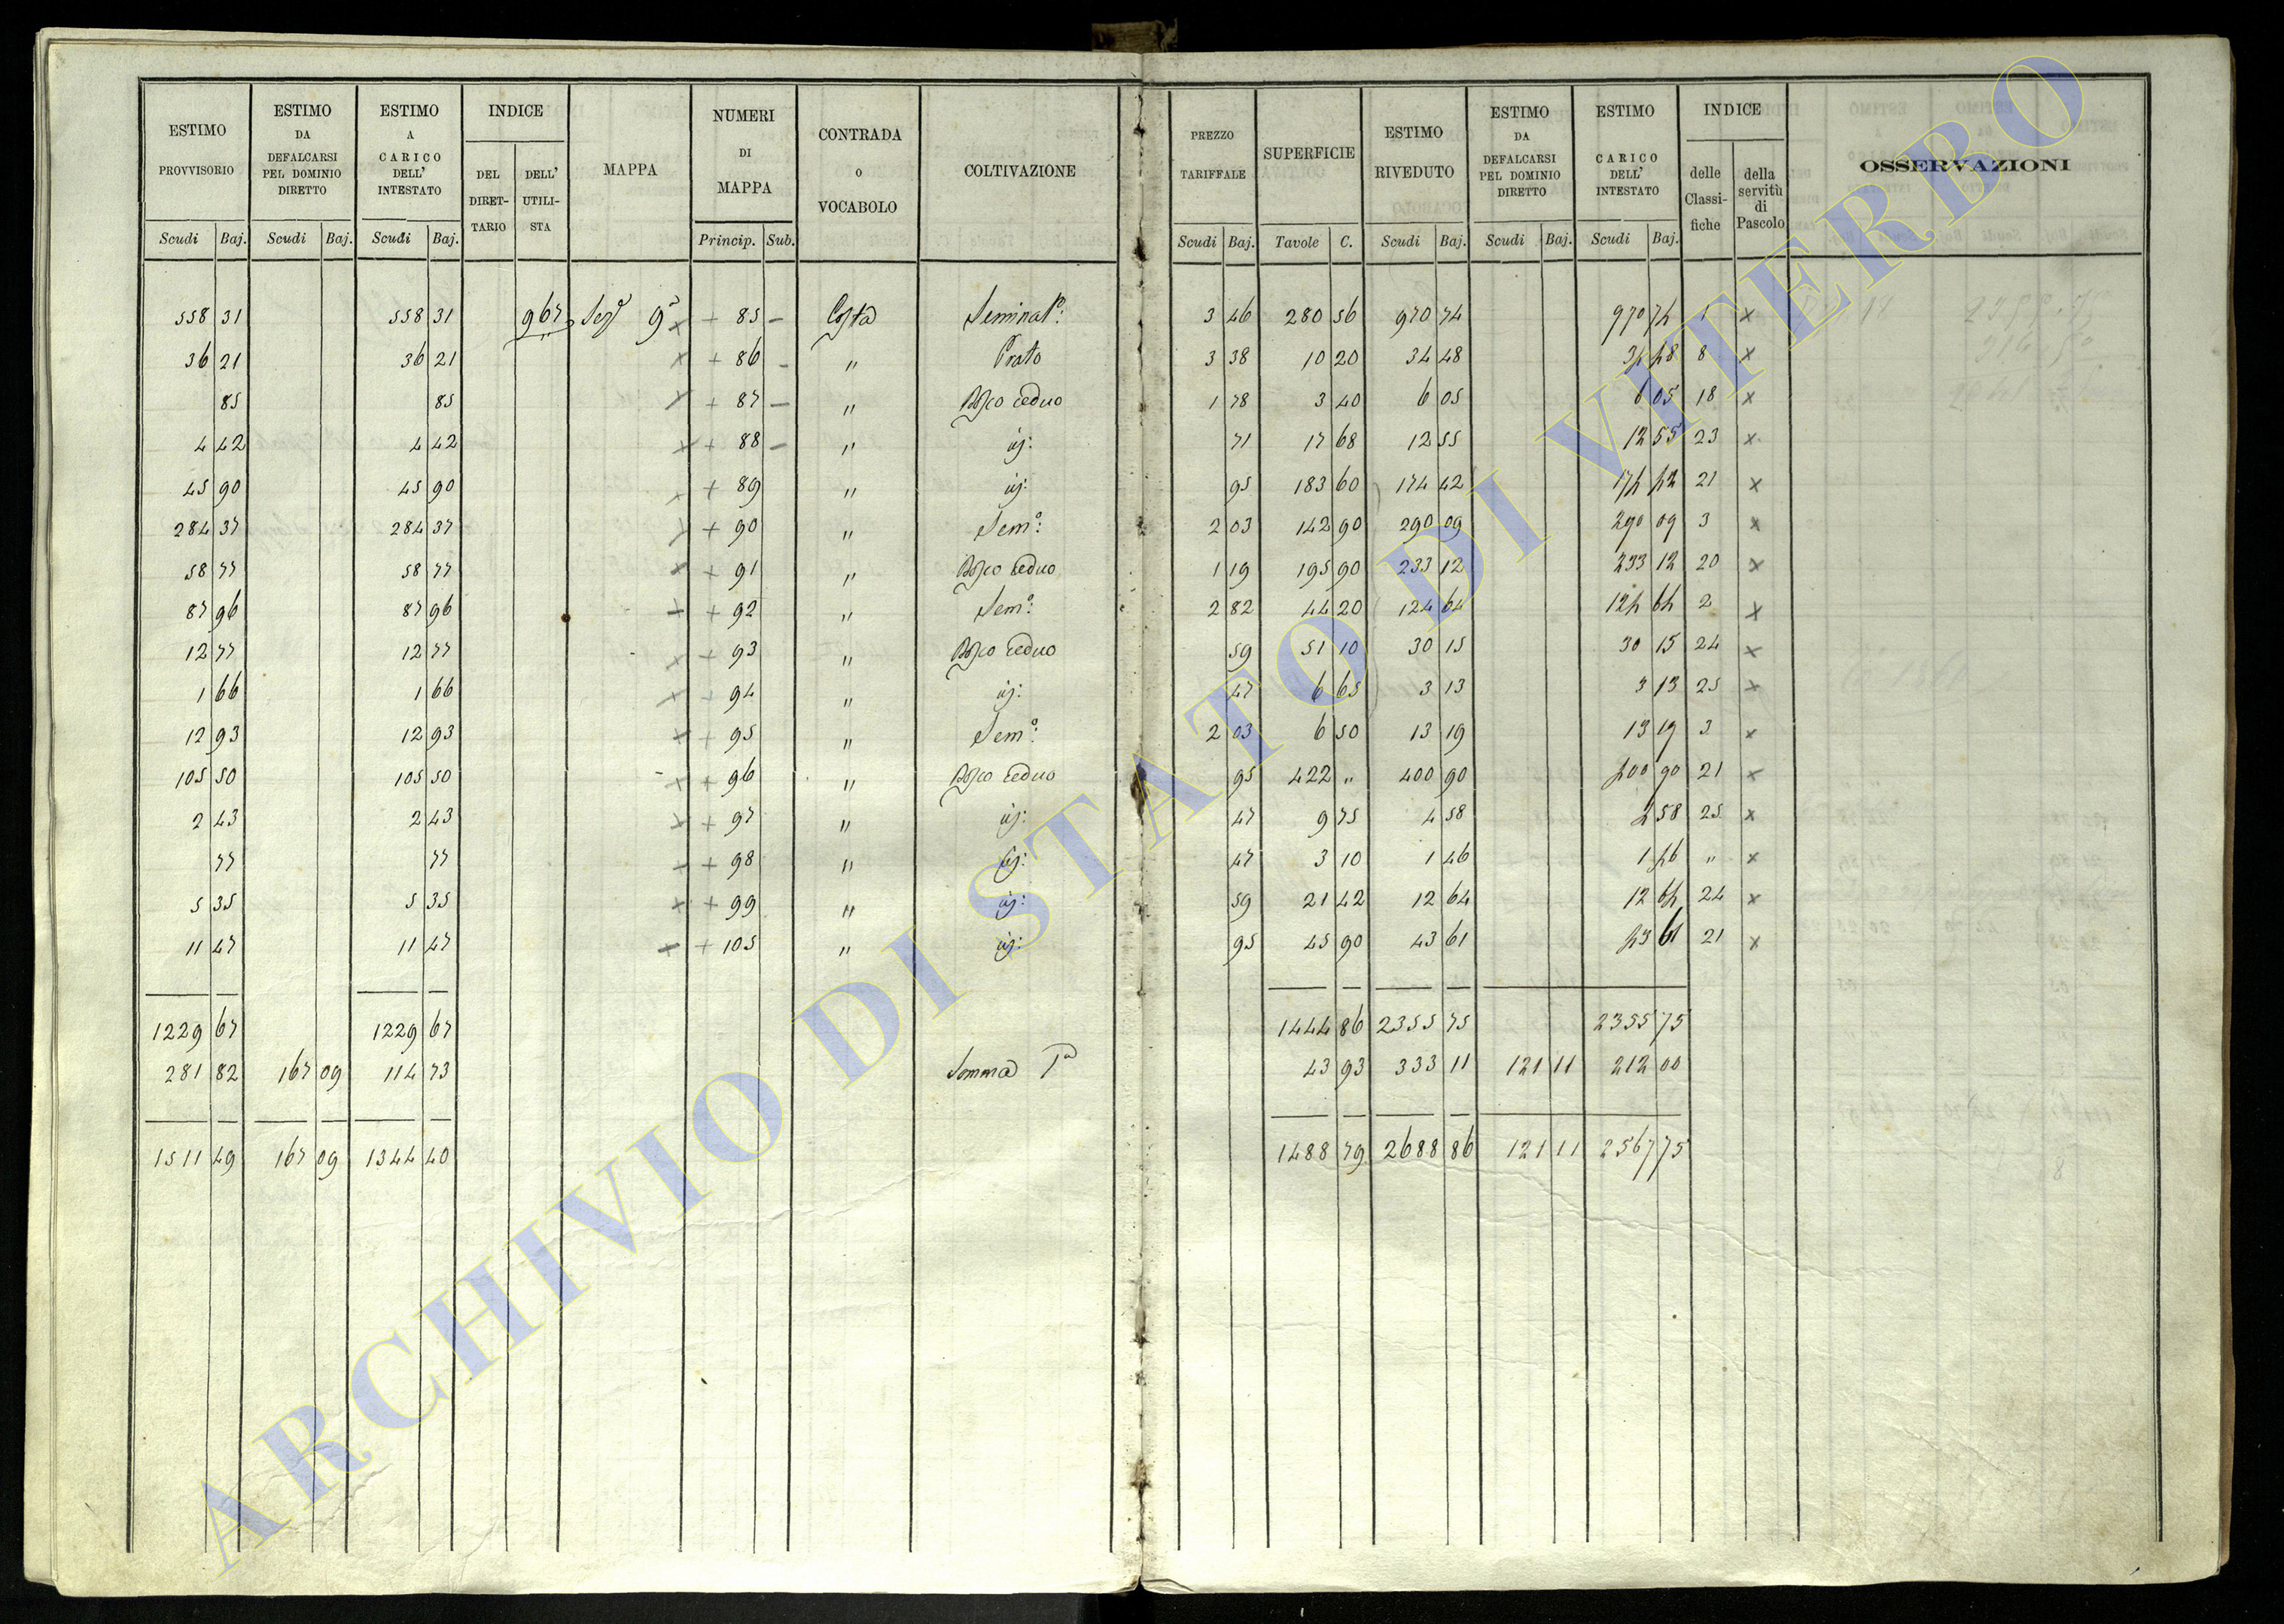 ESTIMO PROVVISORIO | ESTIMO DA DEFALCARSI PEL DOMINIO DIRETTO | ESTIMO A CARICO DELL' INTESTATO | INDICE DEL DIRETTARIO | DELL' UTILISTA | MAPPA | NUMERI DI MAPPA | CONTRADA o VOCABOLO | COLTIVAZIONE | PREZZO TARIFFALE | SUPERFICIE | ESTIMO RIVEDUTO | ESTIMO DA DEFALCARSI PEL DOMINIO DIRETTO | ESTIMO A CARICO DELL' INTESTATO | INDICE delle Classifiche | della servitù di Pascolo | OSSERVAZIONI
Scudi Baj. | Scudi Baj. | Scudi Baj. | Princip. Sub. | Scudi Baj. | Tavole C. | Scudi Baj. | Scudi Baj. | Scudi Baj.
558 31 | 558 31 | 967 | Sezᵉ 9ª × + 85 – | Costa | Seminatº: | 3 46 | 280 56 | 970 74 | 970 74 | 1 | ×
36 21 | 36 21 | × + 86 - | " | Prato | 3 38 | 10 20 | 34 48 | 34 48 | 8 | ×
85 | 85 | × + 87 – | " | Bosco ceduo | 1 78 | 3 40 | 6 05 | 6 05 | 18 | ×
4 42 | 4 42 | × + 88 – | " | id: | 71 | 17 68 | 12 55 | 12 55 | 23 | ×
45 90 | 45 90 | × + 89 | " | id: | 95 | 183 60 | 174 42 | 174 42 | 21 | ×
284 37 | 284 37 | × + 90 | " | Semº: | 2 03 | 142 90 | 290 09 | 290 09 | 3 | ×
58 77 | 58 77 | × + 91 | " | Bosco ceduo | 1 19 | 195 90 | 233 12 | 233 12 | 20 | ×
87 96 | 87 96 | × + 92 | " | Semº: | 2 82 | 44 20 | 124 64 | 124 64 | 2 | ×
12 77 | 12 77 | × + 93 | " | Bosco ceduo | 59 | 51 10 | 30 15 | 30 15 | 24 | ×
1 66 | 1 66 | × + 94 | " | id: | 47 | 6 65 | 3 13 | 3 13 | 25 | ×
12 93 | 12 93 | × + 95 | " | Semº: | 2 03 | 6 50 | 13 19 | 13 19 | 3 | ×
105 50 | 105 50 | × + 96 | " | Bosco ceduo | 95 | 422 " | 400 90 | 400 90 | 21 | ×
2 43 | 2 43 | × + 97 | " | id: | 47 | 9 75 | 4 58 | 4 58 | 25 | ×
77 | 77 | × + 98 | " | id: | 47 | 3 10 | 1 46 | 1 46 | " | ×
5 35 | 5 35 | × + 99 | " | id: | 59 | 21 42 | 12 64 | 12 64 | 24 | ×
11 47 | 11 47 | × + 105 | " | id: | 95 | 45 90 | 43 61 | 43 61 | 21 | ×
1229 67 | 1229 67 | 1444 86 | 2355 75 | 2355 75
281 82 | 167 09 | 114 73 | Somma Pª | 43 93 | 333 11 | 121 11 | 212 00
1511 49 | 167 09 | 1344 40 | 1488 79 | 2688 86 | 121 11 | 2567 75
ARCHIVIO DI STATO DI VITERBO